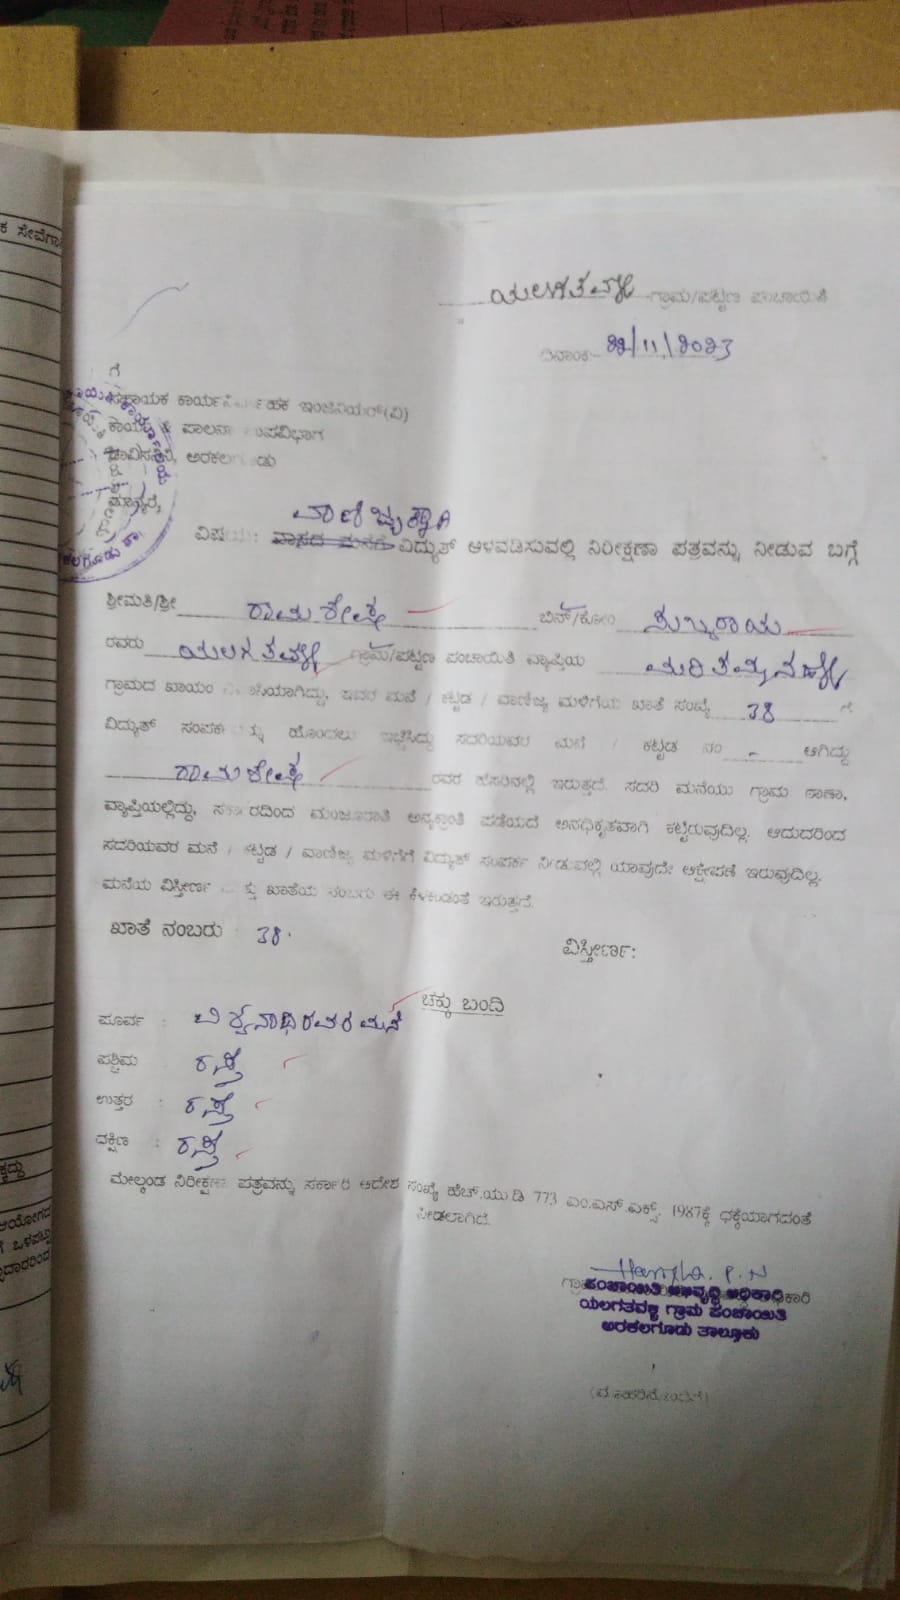 ಕ ಸೇವೆಗಾ
ಯಲಗತವಳ್ಳಿ ಗ್ರಾಮ/ಪಟ್ಟಣ ಪಂಚಾಯಿತಿ
ದಿನಾಂಕ:- 22/11/2023
ಗೆ
ಸಹಾಯಕ ಕಾರ್ಯನಿರ್ವಾಹಕ ಇಂಜಿನಿಯರ್(ವಿ)
ಕಾರ್ಯ ಪಾಲನಾ ಉಪವಿಭಾಗ
ಚಾವಿಸನಿನಿ, ಅರಕಲಗೂಡು
ಮಾನ್ಯರೆ,
ವಾಣಿಜ್ಯಕ್ಕಾಗಿ
ವಿಷಯ: ವಾಸದ ಮನೆಗೆ ವಿದ್ಯುತ್ ಅಳವಡಿಸುವಲ್ಲಿ ನಿರೀಕ್ಷಣಾ ಪತ್ರವನ್ನು ನೀಡುವ ಬಗ್ಗೆ
ಶ್ರೀಮತಿ/ಶ್ರೀ ರಾಮಶೇಷ ಬಿನ್/ಕೋಂ ಸುಬ್ಬರಾಯ
ರವರು ಯಲಗತವಳ್ಳಿ ಗ್ರಾಮ/ಪಟ್ಟಣ ಪಂಚಾಯಿತಿ ವ್ಯಾಪ್ತಿಯ ಮರಿತಮ್ಮನಹಳ್ಳಿ
ಗ್ರಾಮದ ಖಾಯಂ ನಿವಾಸಿಯಾಗಿದ್ದು, ಇವರ ಮನೆ / ಕಟ್ಟಡ / ವಾಣಿಜ್ಯ ಮಳಿಗೆಯ ಖಾತೆ ಸಂಖ್ಯೆ 38 ಗೆ
ವಿದ್ಯುತ್ ಸಂಪರ್ಕವನ್ನು ಹೊಂದಲು ಇಚ್ಛಿಸಿದ್ದು ಸದರಿಯವರ ಮನೆ / ಕಟ್ಟಡ ನಂ - ಆಗಿದ್ದು
ರಾಮಶೇಷ ರವರ ಹೆಸರಿನಲ್ಲಿ ಇರುತ್ತದೆ. ಸದರಿ ಮನೆಯು ಗ್ರಾಮ ಠಾಣಾ,
ವ್ಯಾಪ್ತಿಯಲ್ಲಿದ್ದು, ಸರ್ಕಾರದಿಂದ ಮಂಜೂರಾತಿ ಅನ್ಯಕ್ರಾಂತಿ ಪಡೆಯದೆ ಅನಧಿಕೃತವಾಗಿ ಕಟ್ಟಿರುವುದಿಲ್ಲ. ಆದುದರಿಂದ
ಸದರಿಯವರ ಮನೆ / ಕಟ್ಟಡ / ವಾಣಿಜ್ಯ ಮಳಿಗೆಗೆ ವಿದ್ಯುತ್ ಸಂಪರ್ಕ ನೀಡುವಲ್ಲಿ ಯಾವುದೇ ಆಕ್ಷೇಪಣೆ ಇರುವುದಿಲ್ಲ.
ಮನೆಯ ವಿಸ್ತೀರ್ಣ ಮತ್ತು ಖಾತೆಯ ನಂಬರು ಈ ಕೆಳಕಂಡಂತೆ ಇರುತ್ತದೆ.
ಖಾತೆ ನಂಬರು : 38. ವಿಸ್ತೀರ್ಣ:
ಚಕ್ಕು ಬಂದಿ
ಪೂರ್ವ : ವಿಶ್ವನಾಥರವರ ಮನೆ
ಪಶ್ಚಿಮ ರಸ್ತೆ
ಉತ್ತರ : ರಸ್ತೆ
ದಕ್ಷಿಣ : ರಸ್ತೆ
ಮೇಲ್ಕಂಡ ನಿರೀಕ್ಷಣಾ ಪತ್ರವನ್ನು ಸರ್ಕಾರಿ ಆದೇಶ ಸಂಖ್ಯೆ ಹೆಚ್.ಯು.ಡಿ 773 ಎಂ.ಎನ್.ಎಕ್ಸ್. 1987ಕ್ಕೆ ಧಕ್ಕೆಯಾಗದಂತೆ
ನೀಡಲಾಗಿದೆ.
ಪಂಚಾಯಿತಿ ಅಭಿವೃದ್ಧಿ ಅಧಿಕಾರಿ
ಯಲಗತವಳ್ಳಿ ಗ್ರಾಮ ಪಂಚಾಯಿತಿ
ಅರಕಲಗೂಡು ತಾಲ್ಲೂಕು
(ಮೊಹರಿನೊಂದಿಗೆ)